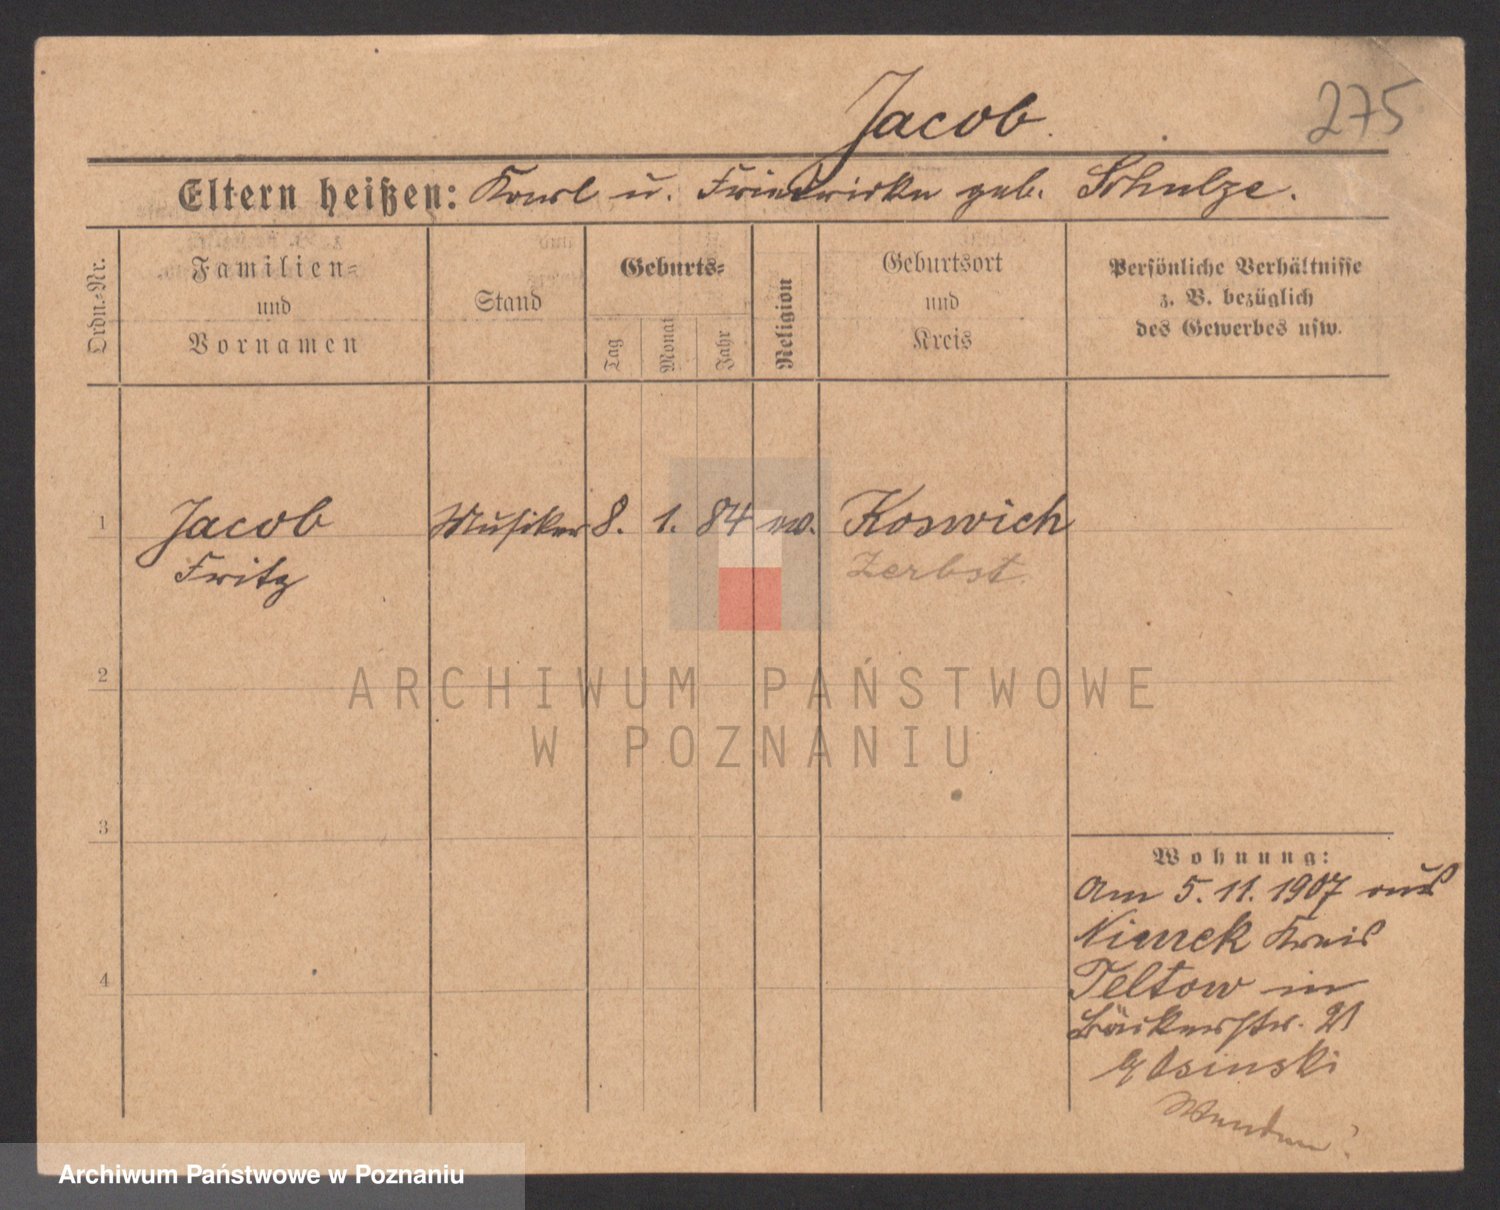 275
Jacob.
Eltern heißen: Karl u. Friedericke geb. Schulze.
Ordn.-Nr.
Familien-
und
Vornamen
Stand
Geburts-
Tag
Monat
Jahr
Religion
Geburtsort
und
Kreis
Persönliche Verhältnisse
z. B. bezüglich
des Gewerbes usw.
1 Jacob Musiker 8. 1. 84 ev. Koswich
Fritz Zerbst
ARCHIWUM PAŃSTWOWE
W POZNANIU
2
3
4
Wohnung:
Am 5.11.1907 aus
Kreis
Teltow in
Bäckerstr. 21
Wenden!
Archiwum Państwowe w Poznaniu